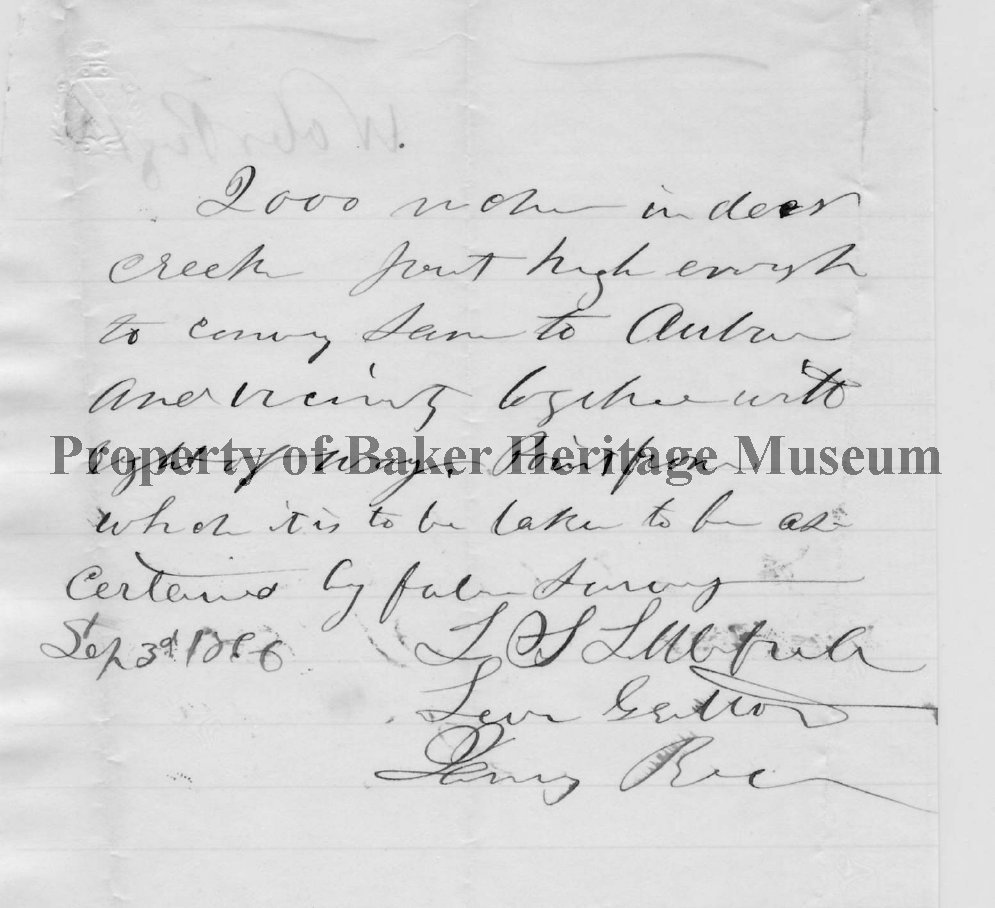 2000 inches in deer
creek point high enough
to convey same to Auburn
and vicinity together with
right of way. Point from
Property of Baker Heritage Museum
which it is to be taken to be as
certained by future survey
Sep 3d 1866 L
Levi
Henry Rice